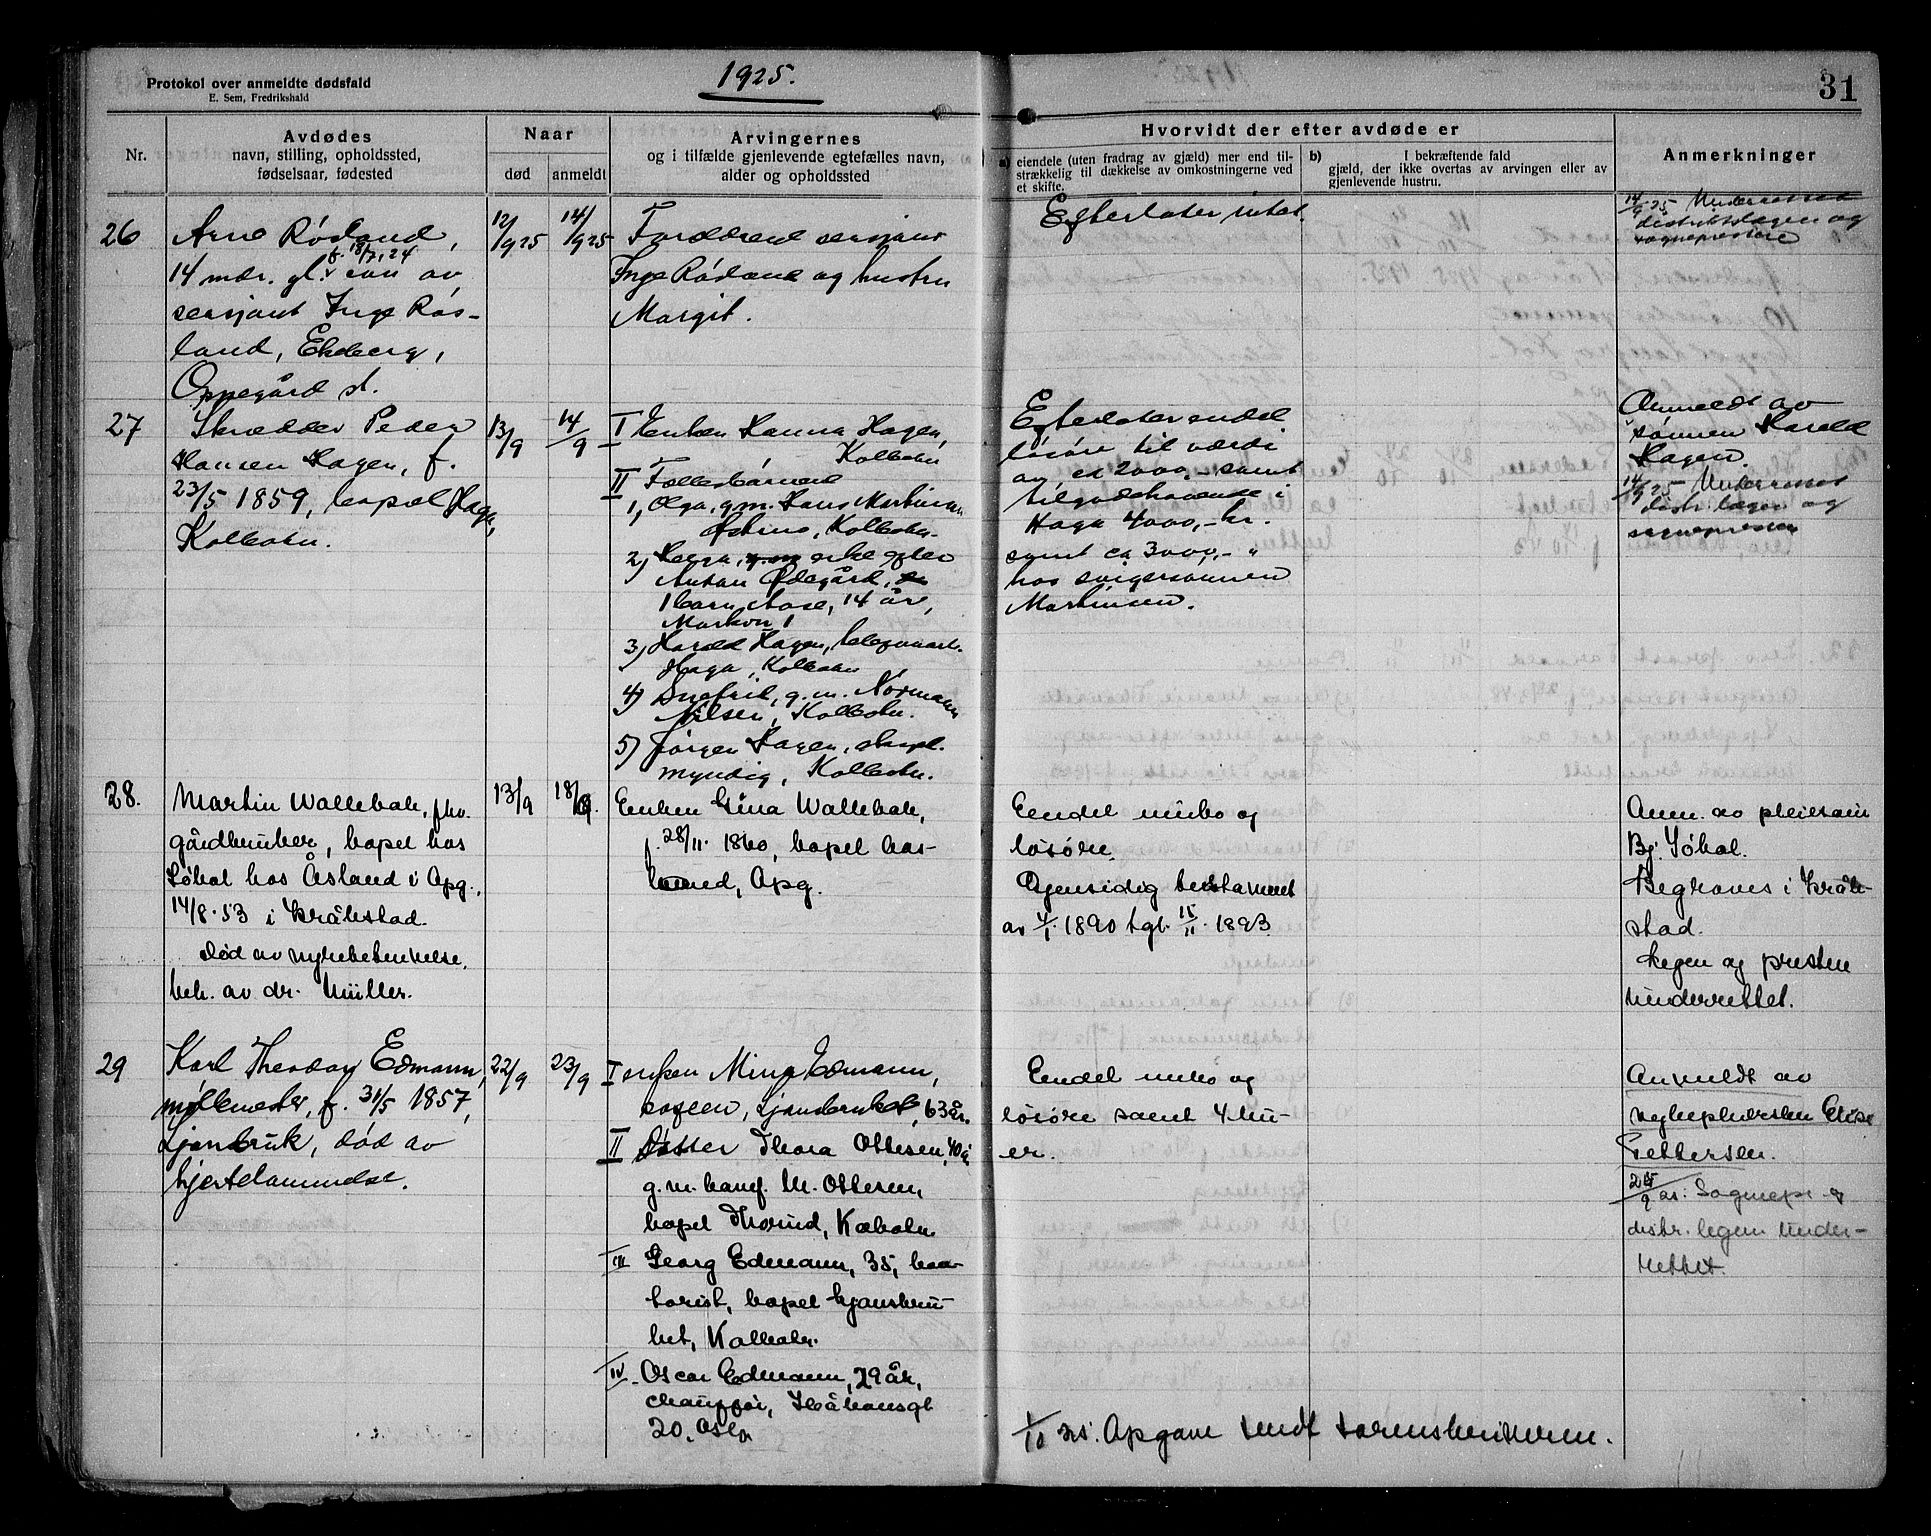 Protokol over anmeldte dødsfald
E. Sem, Fredrikshald
1925.
31
Nr.
Avdødes
navn, stilling, opholdssted,
fødselsaar, fødested
Naar
død
anmeldt
Arvingernes
og i tilfælde gjenlevende egtefælles navn,
alder og opholdssted
Hvorvidt der efter avdøde er
a) eiendele (uten fradrag av gjæld) mer end til-
strækkelig til dækkelse av omkostningerne ved
et skifte.
b) I bekræftende fald
gjæld, der ikke overtas av arvingen eller av
gjenlevende hustru.
Anmerkninger
26
Arne Røsland,
f. 18/7.24
14 mdr. gl. søn av
sersjant Inge Røs-
land, Ekeberg,
Oppegård st.
12/9 25
14/9 25
Forældrene sersjant
Inge Røsland og hustru
Margit.
Efterlater intet.
14/9 25 Underrettet
distriktslægen og
sognepresten
27
Skrædder Peder
Hansen Hagen, f.
23/5 1859, bopæl Haga,
Kolbotn.
13/9
14/9
I Enken Hanna Hagen,
Kolbotn
II Fællesbarnene
1, Olga, g.m. Hans Martinsen
Kolbotn.
2, enke efter
Anton Ødegård,
1 barn Aase, 14 år,
3, Harald Hagen,
Haga, Kolbotn
4, Snefrid, g.m. Norman
Nilsen, Kolbotn.
5, Jørgen Hagen,
myndig, Kolbotn.
Efterlater endel
løsøre til værdi
av ca 2000,- samt
tilgodehavende i
Haga 4000,- kr.
samt ca 3000,- "
hos svigersønnen
Martinsen.
Anmeldt av
sønnen Harald
Hagen.
14/9 25 Underrettet
distr. lægen og
sognepresten
28.
Martin Wallebæk, fhv.
gårdbruker, bopæl hos
Søhol hos Åsland i Apg.,
14/8.53 i Kråkstad.
Død av nyrebetennelse,
beh. av dr. Müller.
13/9
18/9.
Enken Gina Wallebæk,
f. 28/11. 1860, bopæl
Apg.
Eendel innbo og
løsøre.
Gjensidig testament
av 4/1. 1890 tgl. 15/11. 1893.
Anm. av pleiesønn
Bj. Søhol.
Begraves i Kråk-
stad.
Legen og presten
underrettet.
29
Karl Theodor Edmann,
møllemester, f. 31/5 1857,
Ljansbruk, død av
hjertelammelse.
22/9
23/9
I enken Mina Edmann,
Ljansbruket, 63 år.
II Datter Thora Ottesen, 40 å
g.m. M. Ottesen,
bopel Kolbotn
III Georg Edmann, 35,
bopel Ljansbru-
ket, Kolbotn.
IV. Oscar Edmann, 29 år,
chauffør,
20, Oslo
Eendel innbo og
løsøre samt 4 ku-
er.
Anmeldt av
sykepleiersken Elise
Pettersen.
24/9 as: Sognepr. og
distr. legen under-
rettet.
1/10 as: Opgave sendt sorenskriveren.